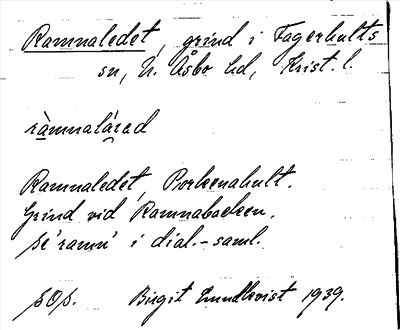 Ramnaledet, grind i Fagerhults
sn, N. Åsbo hd, Krist. l.
ràmnalárad
Ramnaledet, Porkenahult.
Grind vid Ramnabacken.
se 'ramn' i dial.-saml.
SOS. Birgit Lundkvist 1939.